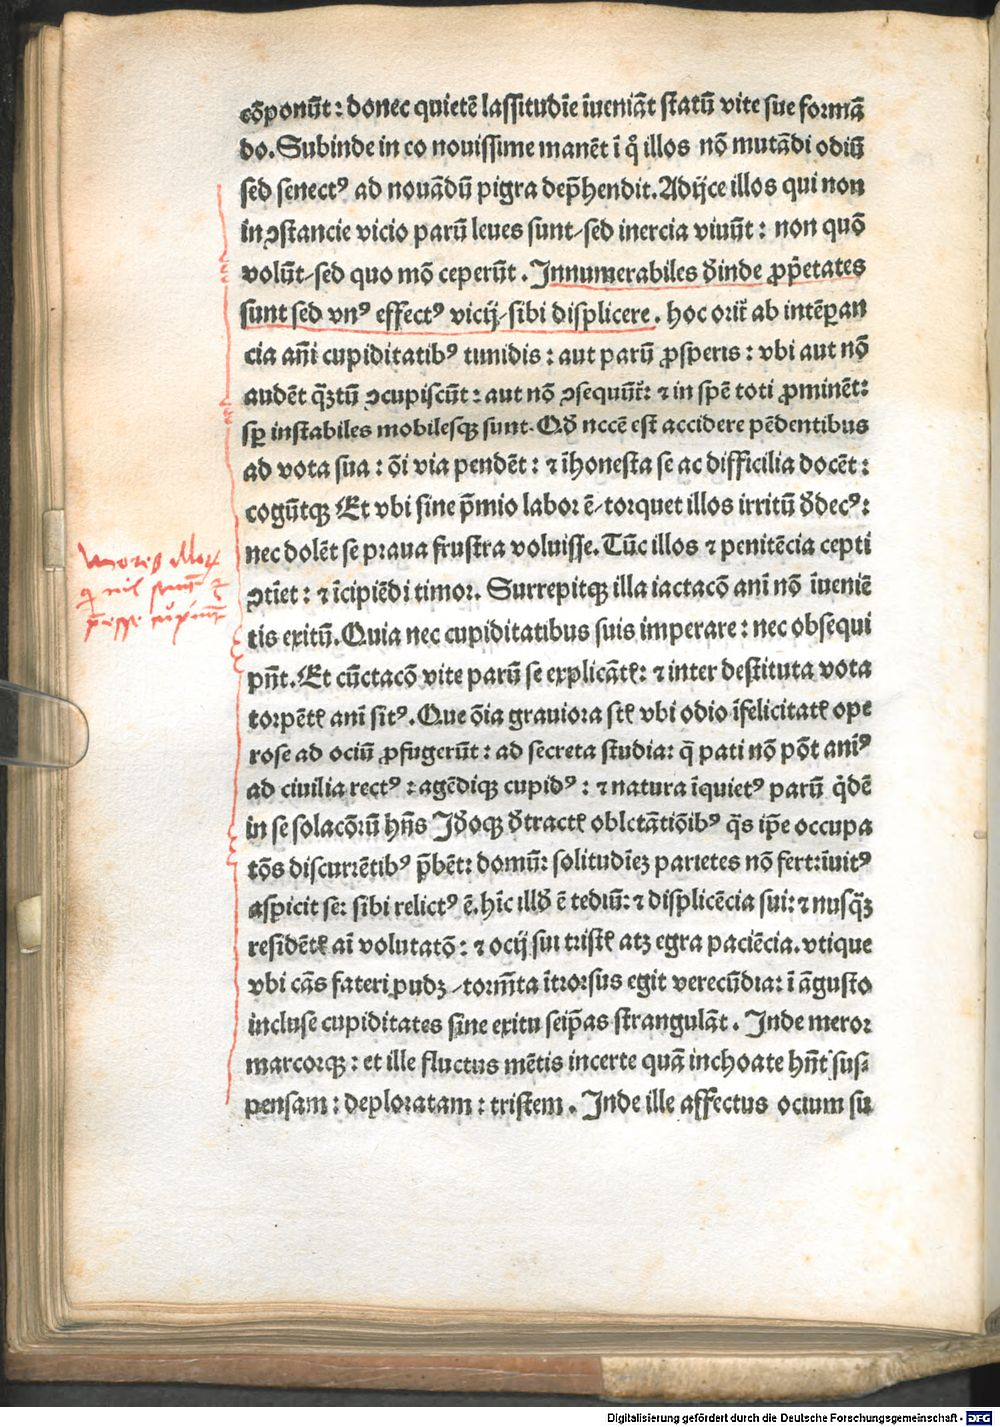 cōponūt: donec quietē lassitudīe īueniāt statū vite sue formā
do. Subinde in eo nouissime manēt ī q̊ illos nō mutādi odiū
sed senectꝰ ad nouādū pigra dep̄hendit. Adijce illos qui non
inↄstancie vicio parū leues sunt/ sed inercia viuūt: non quō
volūt/ sed quo mō ceperūt. Innumerabiles ꝺinde ꝓp̄etates
sunt sed vnꝰ effectꝰ vicij/ sibi displicere. hoc orit̄ ab intēꝑan
cia añi cupiditatibꝰ timidis: aut parū ꝓsperis: vbi aut nō
audēt q̄ꝫtū ↄcupiscūt: aut nō ↄsequūt̄: ⁊ in spē toti ꝓminēt:
sp̄ instabiles mobilesqꝫ sunt. Qꝺ nccē est accidere pēdentibus
ad vota sua: ōi via pendēt: ⁊ īhonesta se ac difficilia docēt:
cogūtqꝫ Et vbi sine p̄mio labor ē/ torquet illos irritū ꝺdecꝰ:
nec dolēt se praua frustra voluisse. Tūc illos ⁊ penitēcia cepti
ↄtiet: ⁊ īcipiēdi timor. Surrepitqꝫ illa iactacō ani nō īueniē
tis exitū. Quia nec cupiditatibus suis imperare: nec obsequi
pn̄t. Et cūctacō vite parū se explicātꝭ: ⁊ inter destituta vota
torpētꝭ ani sitꝰ. Que ōia grauiora stꝭ vbi odio īfelicitatꝭ ope
rose ad ociū ꝓfugerūt: ad secreta studia: q̄ pati nō pōt aniꝰ
ad ciuilia rectꝰ: agēdiqꝫ cupidꝰ: ⁊ natura īquietꝰ parū q̇dē
in se solacōꝛū hñs Iꝺoqꝫ ꝺtractꝭ oblctātiōibꝰ q̄s ip̄e occupa
tōs discurrētibꝰ p̄bēt: domū: solitudīeꝫ parietes nō fert: īuitꝰ
aspicit se: sibi relictꝰ ē. hīc illꝺ ē tediū: ⁊ displicēcia sui: ⁊ nusq̄ꝫ
residētꝭ ai volutatō: ⁊ ocij sui tristꝭ atꝫ egra paciēcia. vtique
vbi cās fateri pudꝫ/ torm̄ta ītrorsus egit verecūdia: ī āgusto
incluse cupiditates sine exitu seip̄as strangulāt. Inde meror
marcorqꝫ: et ille fluctus mētis incerte quā inchoate hn̄t sus⸗
pensam: deploratam: tristem. Inde ille affectus ocium su
mores illoꝝ
Digitalisierung gefördert durch die Deutsche Forschungsgemeinschaft - DFG